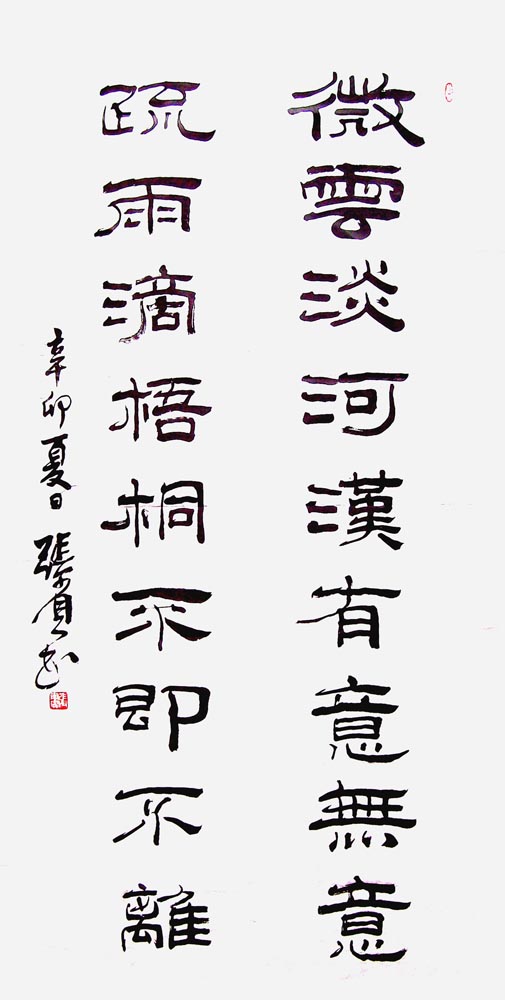 微雲淡河漢有意無意
疏雨滴梧桐不即不離
辛卯夏日張貞書